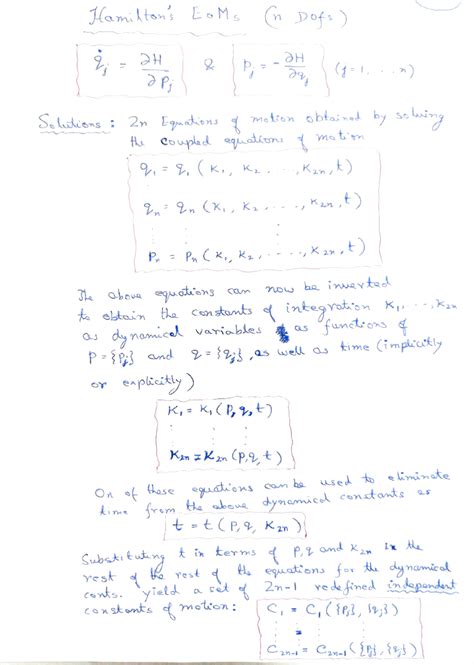 Hamilton's EoMs (n Dofs)
q̇_j = ∂H/∂P_j & P_j = - ∂H/∂q_j (j=1, ... n)
Solutions : 2n Equations of motion obtained by solving
the coupled equations of motion
q_1 = q_1 (K_1, K_2 ....., K_2n, t)
q_n = q_n (K_1, K_2 ....., K_2n, t)
P_n = P_n (K_1, K_2, ....., K_2n, t)
The above equations can now be inverted
to obtain the constants of integration K_1, ..., K_2n
as dynamical variables as functions of
P = {P_j} and q = {q_j}, as well as time (implicitly
or explicitly)
K_1 = K_1 (P, q, t)
K_2n = K_2n (P, q, t)
On of these equations can be used to eliminate
time from the above dynamical constants as
t = t (P, q, K_2n)
Substituting t in terms of P, q and K_2n in the
rest of the rest of the equations for the dynamical
conts. yield a set of 2n-1 redefined independent
constants of motion: C_1 = C_1 ({P_j}, {q_j})
=
C_2n-1 = C_2n-1 ({P_j}, {q_j})